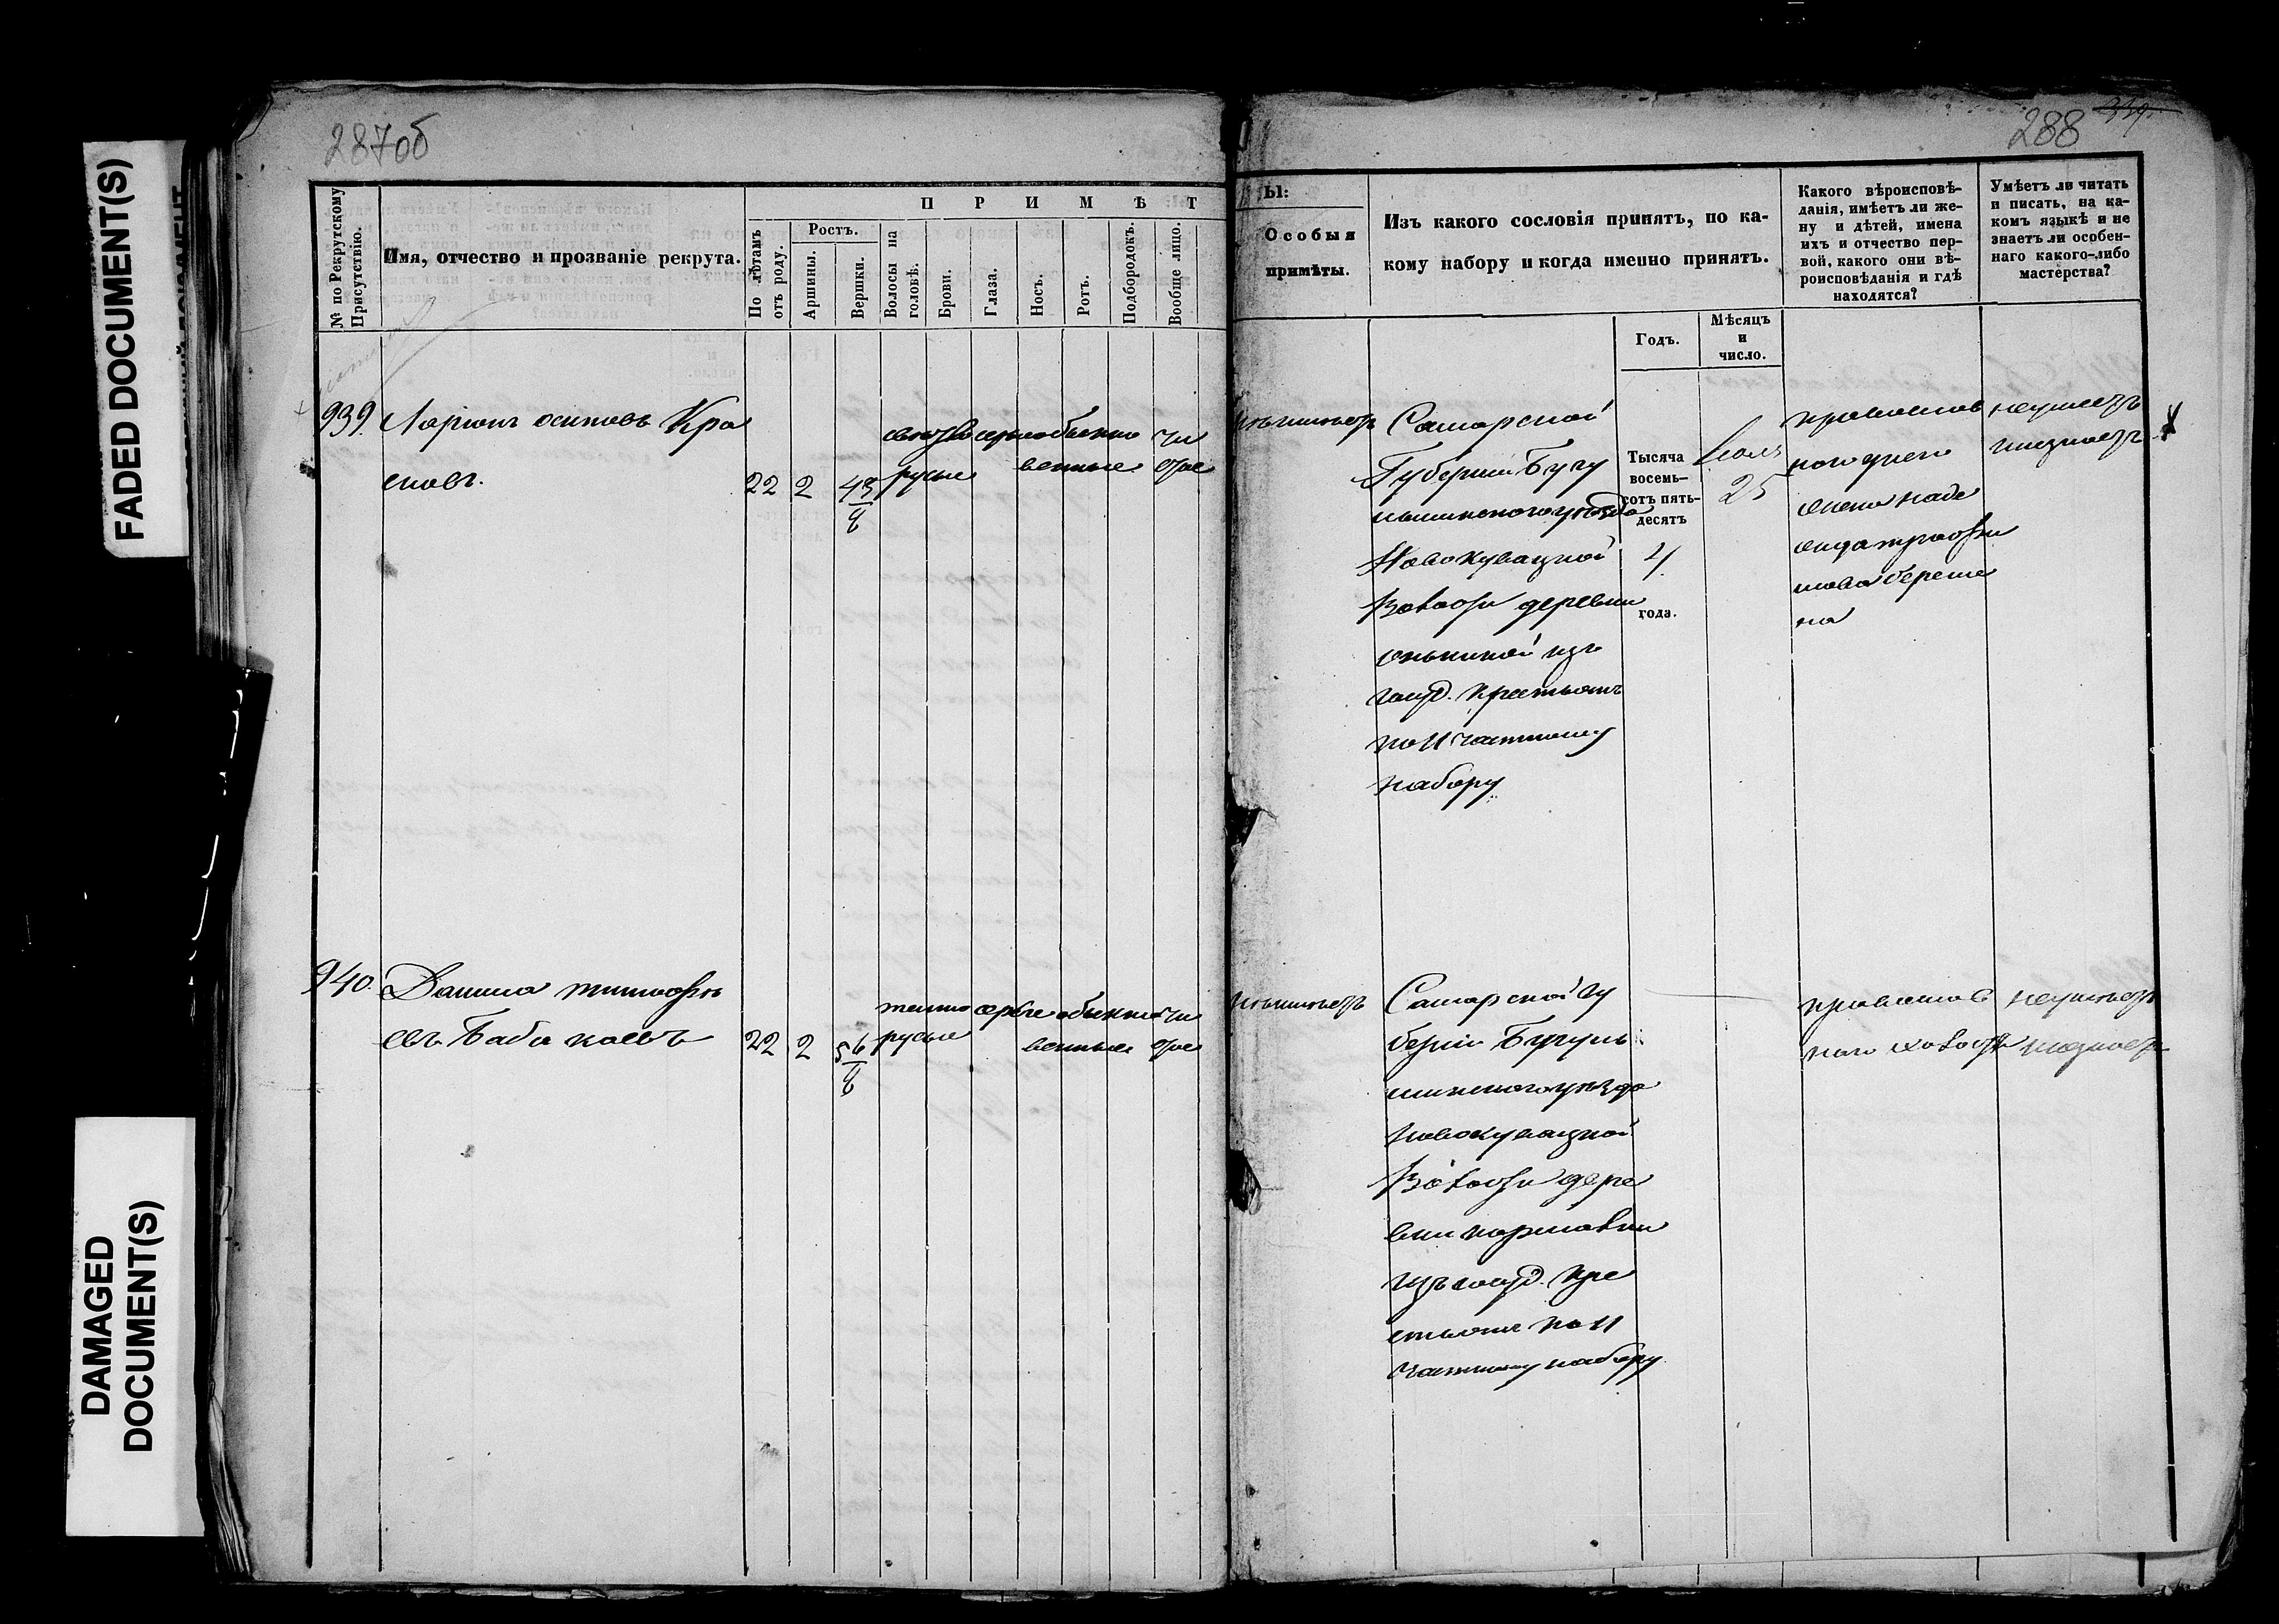 FADED DOCUMENT(S)
DAMAGED
DOCUMENT(S)
287об
288
№ по Рекрутскому
Присутствію.
Имя, отчество и прозваніе рекрута.
П Р И М Ѣ Т
По лѣтамъ
отъ роду.
Ростъ.
Аршины.
Вершки.
Волосы на
головѣ.
Брови.
Глаза.
Носъ.
Ротъ.
Подбородокъ.
Вообще лицо.
Ы:
Особыя
примѣты.
Изъ какого сословія принятъ, по ка-
кому набору и когда именно принятъ.
Годъ.
Мѣсяцъ
и
число.
Какого вѣроисповѣ-
данія, имѣетъ ли же-
ну и дѣтей, имена
ихъ и отчество пер-
вой, какого они вѣ-
роисповѣданія и гдѣ
находятся?
Умѣетъ ли читать
и писать, на ка-
комъ языкѣ и не
знаетъ ли особен-
наго какого-либо
мастерства?
939. Ларіонъ осиповъ Кра
сновъ.
22 2 4 3/8
русые
обыкно
венные
чи
стое
неимѣетъ
Самарской
Губерніи Бугу
льминскогоуѣзда
Новокувацкой
Волости деревни
изъ
госуд. крестьянъ
по 11 частному
набору
Тысяча
восемь-
сотъ пять-
десятъ
4
года.
25
православ
ного унего
жена наде
на
неумеетъ
инезнаетъ
940. Данила тимофѣ
евъ
22 2 5 6/8
темно
русые
серые
обыкно
венные
чи
стое
неимѣетъ
Самарской гу
берніи Бугуль
минскогоуѣзда
Новокувацкой
Волости дере
вни
изъ госуд. кре
стьянъ по 11
частному набору
православ
ного холостъ
неумѣетъ
инезнаетъ